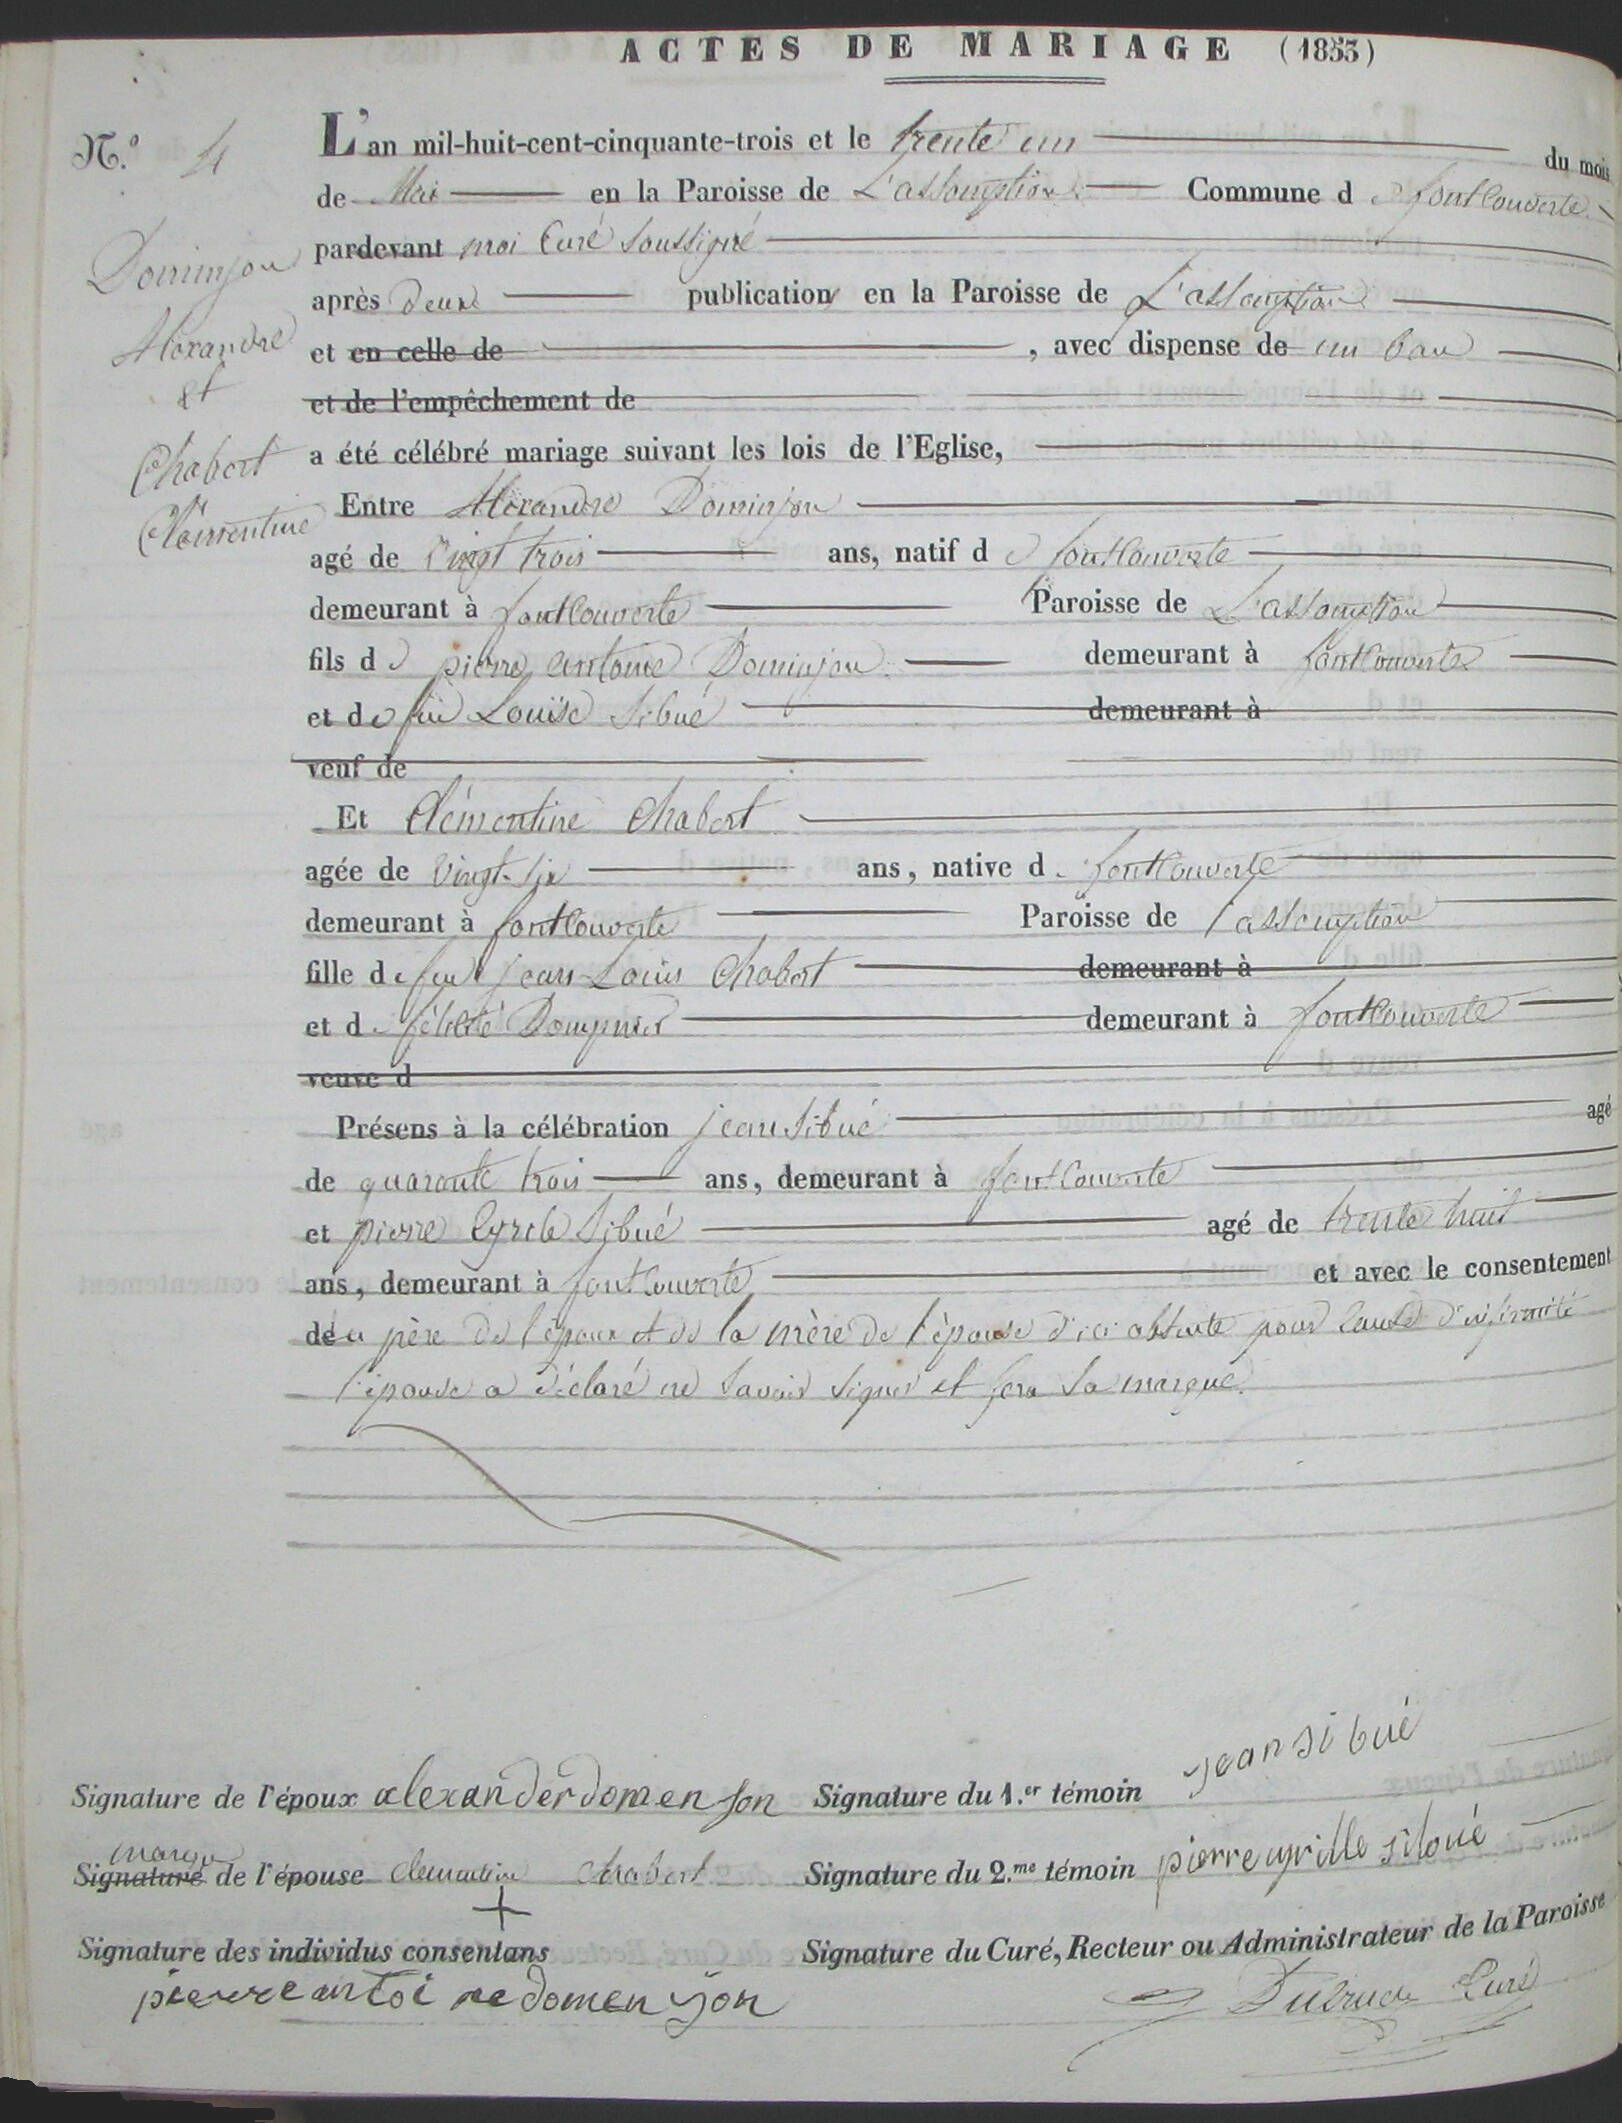 ACTES DE MARIAGE (1853)
N.º 4
Dominjon
Alexandre
et
Chabert
Clémentine
L'an mil-huit-cent-cinquante-trois et le trente un du mois
de Mai en la Paroisse de L'assomption Commune de fontcouverte
pardevant moi Curé soussigné
après deux publication en la Paroisse de L'assomption
et en celle de , avec dispense de un ban
et de l'empêchement de
a été célébré mariage suivant les lois de l'Eglise,
Entre Alexandre Dominjon
agé de vingt trois ans, natif de fontcouverte
demeurant à fontcouverte Paroisse de L'assomption
fils de pierre antoine Dominjon demeurant à fontcouverte
et de feu Louise Sibué demeurant à
veuf de
Et Clémentine Chabert
agée de vingt-six ans, native d fontcouverte
demeurant à fontcouverte Paroisse de l'assomption
fille de feu jean Louis Chabert demeurant à
et de félicité demeurant à fontcouverte
veuve d
Présens à la célébration jean Sibué agé
de quarante trois ans, demeurant à fontcouverte
et pierre Cyrile Sibué agé de trente huit
ans, demeurant à fontcouverte et avec le consentement
du père de l'époux et de la mère de l'épouse d'ici absente pour cause d'infirmité
l'épouse a déclaré ne savoir signer et fera sa marque.
Signature de l'époux alexander domenjon Signature du 1.er témoin jean sibué
marque
Signature de l'épouse clementine chabert Signature du 2.me témoin pierre cyrille siboué
+
Signature des individus consentans Signature du Curé, Recteur ou Administrateur de la Paroisse
pierre antoine domenjon Curé